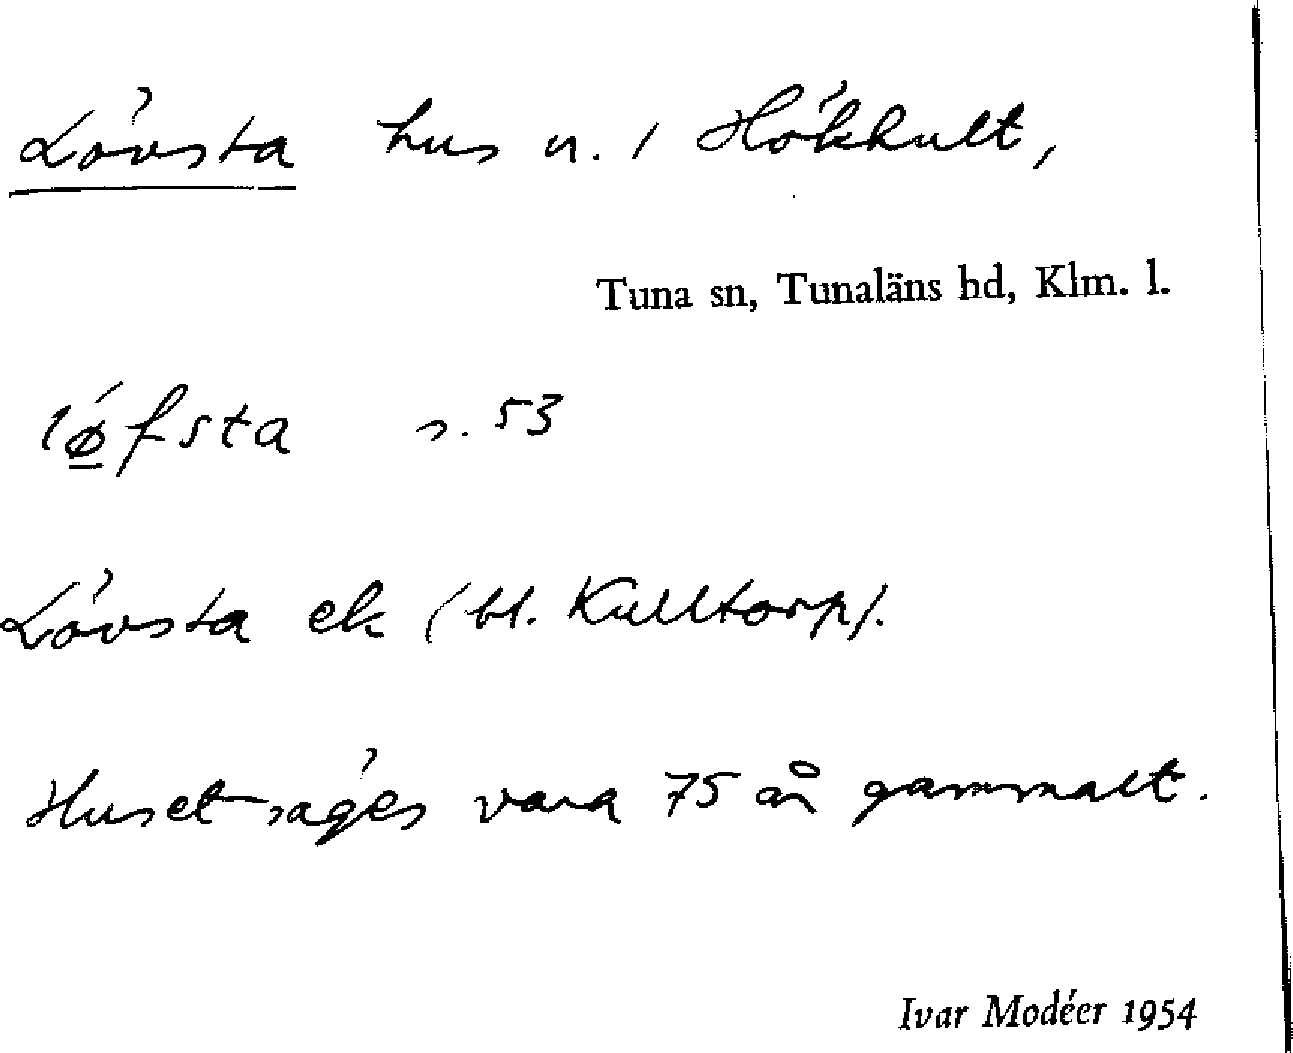 Lövsta hus n. i Hökhult,
Tuna sn, Tunaläns hd, Klm. l.
lǿ̲fsta s. 53
Lövsta ek (bl. Kulltorp).
Huset säges vara 75 år gammalt.
Ivar Modéer 1954